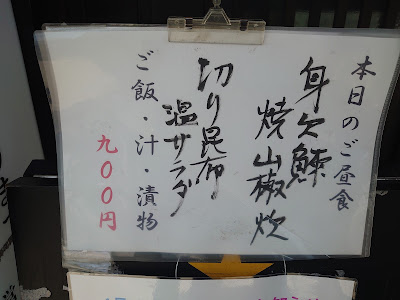 本日のご昼食
身欠鰊
焼山椒炊
切り昆布
温サラダ
ご飯・汁・漬物
九〇〇円